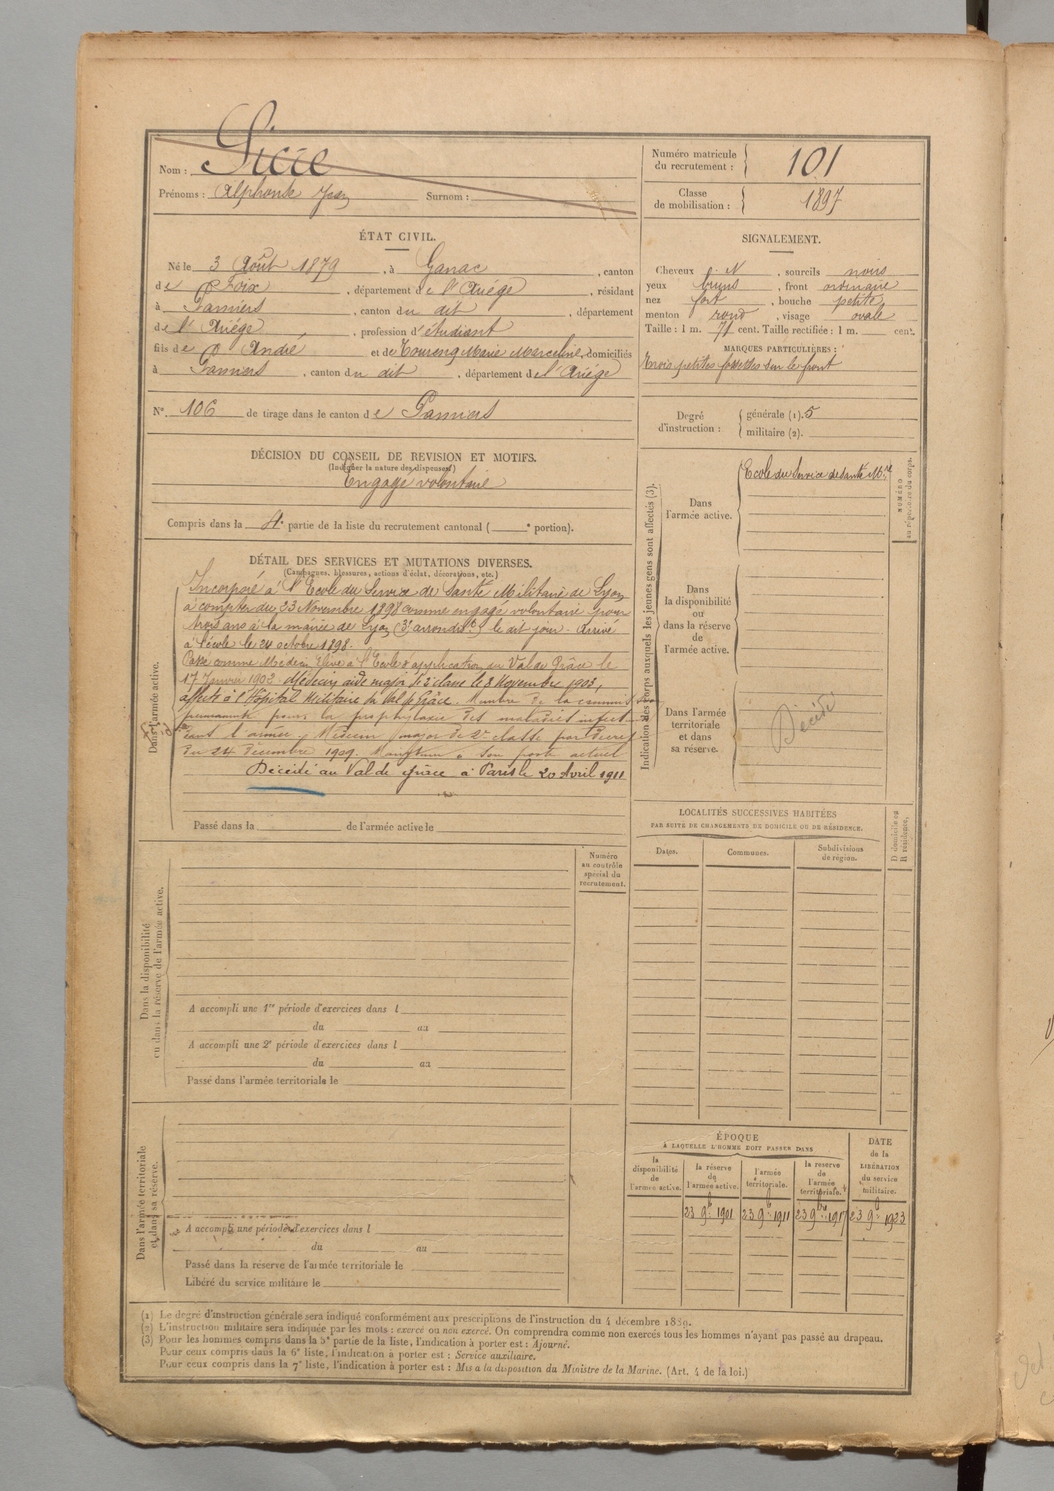 Nom : Sicre
Prénoms : Alphonse Jean Surnom :
Numéro matricule du recrutement : 101
Classe de mobilisation : 1897
ÉTAT CIVIL.
Né le 3 Août 1879, à Ganac, canton
de Foix, département de l'Ariège, résidant
à Pamiers, canton du dit, département
de l'Ariège, profession d'étudiant
fils de André et de Toureng Marie Marceline, domiciliés
à Pamiers, canton du dit, département de l'Ariège
N° 106 de tirage dans le canton de Pamiers
SIGNALEMENT.
Cheveux N, sourcils noirs
yeux bruns, front ordinaire
nez fort, bouche petite
menton rond, visage ovale
Taille : 1 m. 71 cent. Taille rectifiée : 1 m. cent.
MARQUES PARTICULIÈRES :
trois petites fossettes sur le front
Degré d'instruction :
générale (1). 5
militaire (2).
DÉCISION DU CONSEIL DE REVISION ET MOTIFS.
(Indiquer la nature des dispenses)
Engagé volontaire
Compris dans la 4e partie de la liste du recrutement cantonal ( e portion).
DÉTAIL DES SERVICES ET MUTATIONS DIVERSES.
(Campagnes, blessures, actions d'éclat, décorations, etc.)
Dans l'armée active.
Incorporé à l'Ecole du Service de Santé Militaire de Lyon
à compter du 23 Novembre 1898 comme engagé volontaire pour
trois ans à la mairie de Lyon (3e arrondist) le dit jour. Arrivé
à l'école le 24 octobre 1898.
Passé comme Médecin Elève à l'Ecole d'application du Val de Grâce le
17 Janvier 1902. Médecin aide major de 2e classe le 3 Novembre 1903,
affecté à l'Hôpital Militaire du Val de Grâce. Membre de la commission
permanente pour la prophylaxie des maladies infect
dans l'armée. Médecin major de 2e classe par décret
du 24 décembre 1909. Maintenu à son poste actuel
Décédé au Val de Grâce à Paris le 20 Avril 1911
Passé dans la de l'armée active le
Indication des corps auxquels les jeunes gens sont affectés (3).
Dans l'armée active.
Ecole du Service de Santé Mre
NUMÉRO au répertoire du corps.
Dans la disponibilité ou dans la réserve de l'armée active.
Dans l'armée territoriale et dans sa réserve.
Décédé
LOCALITÉS SUCCESSIVES HABITÉES
PAR SUITE DE CHANGEMENTS DE DOMICILE OU DE RÉSIDENCE.
Dates. Communes. Subdivisions de région.
D domicile ou R résidence.
Dans la disponibilité ou dans la réserve de l'armée active.
Numéro au contrôle spécial du recrutement.
A accompli une 1re période d'exercices dans l
du au
A accompli une 2e période d'exercices dans l
du au
Passé dans l'armée territoriale le
Dans l'armée territoriale et dans sa réserve.
A accompli une période d'exercices dans l
du au
Passé dans la réserve de l'armée territoriale le
Libéré du service militaire le
ÉPOQUE
À LAQUELLE L'HOMME DOIT PASSER DANS
la disponibilité de l'armée active.
la réserve de l'armée active.
l'armée territoriale.
la réserve de l'armée territoriale.
DATE de la LIBÉRATION du service militaire.
23 9b 1901 23 9b 1911 23 9bre 1917 23 9b 1923
(1) Le degré d'instruction générale sera indiqué conformément aux prescriptions de l'instruction du 4 décembre 1889.
(2) L'instruction militaire sera indiquée par les mots : exercé ou non exercé. On comprendra comme non exercés tous les hommes n'ayant pas passé au drapeau.
(3) Pour les hommes compris dans la 5e partie de la liste, l'indication à porter est : Ajourné.
Pour ceux compris dans la 6e liste, l'indication à porter est : Service auxiliaire.
Pour ceux compris dans la 7e liste, l'indication à porter est : Mis à la disposition du Ministre de la Marine. (Art. 4 de la loi.)